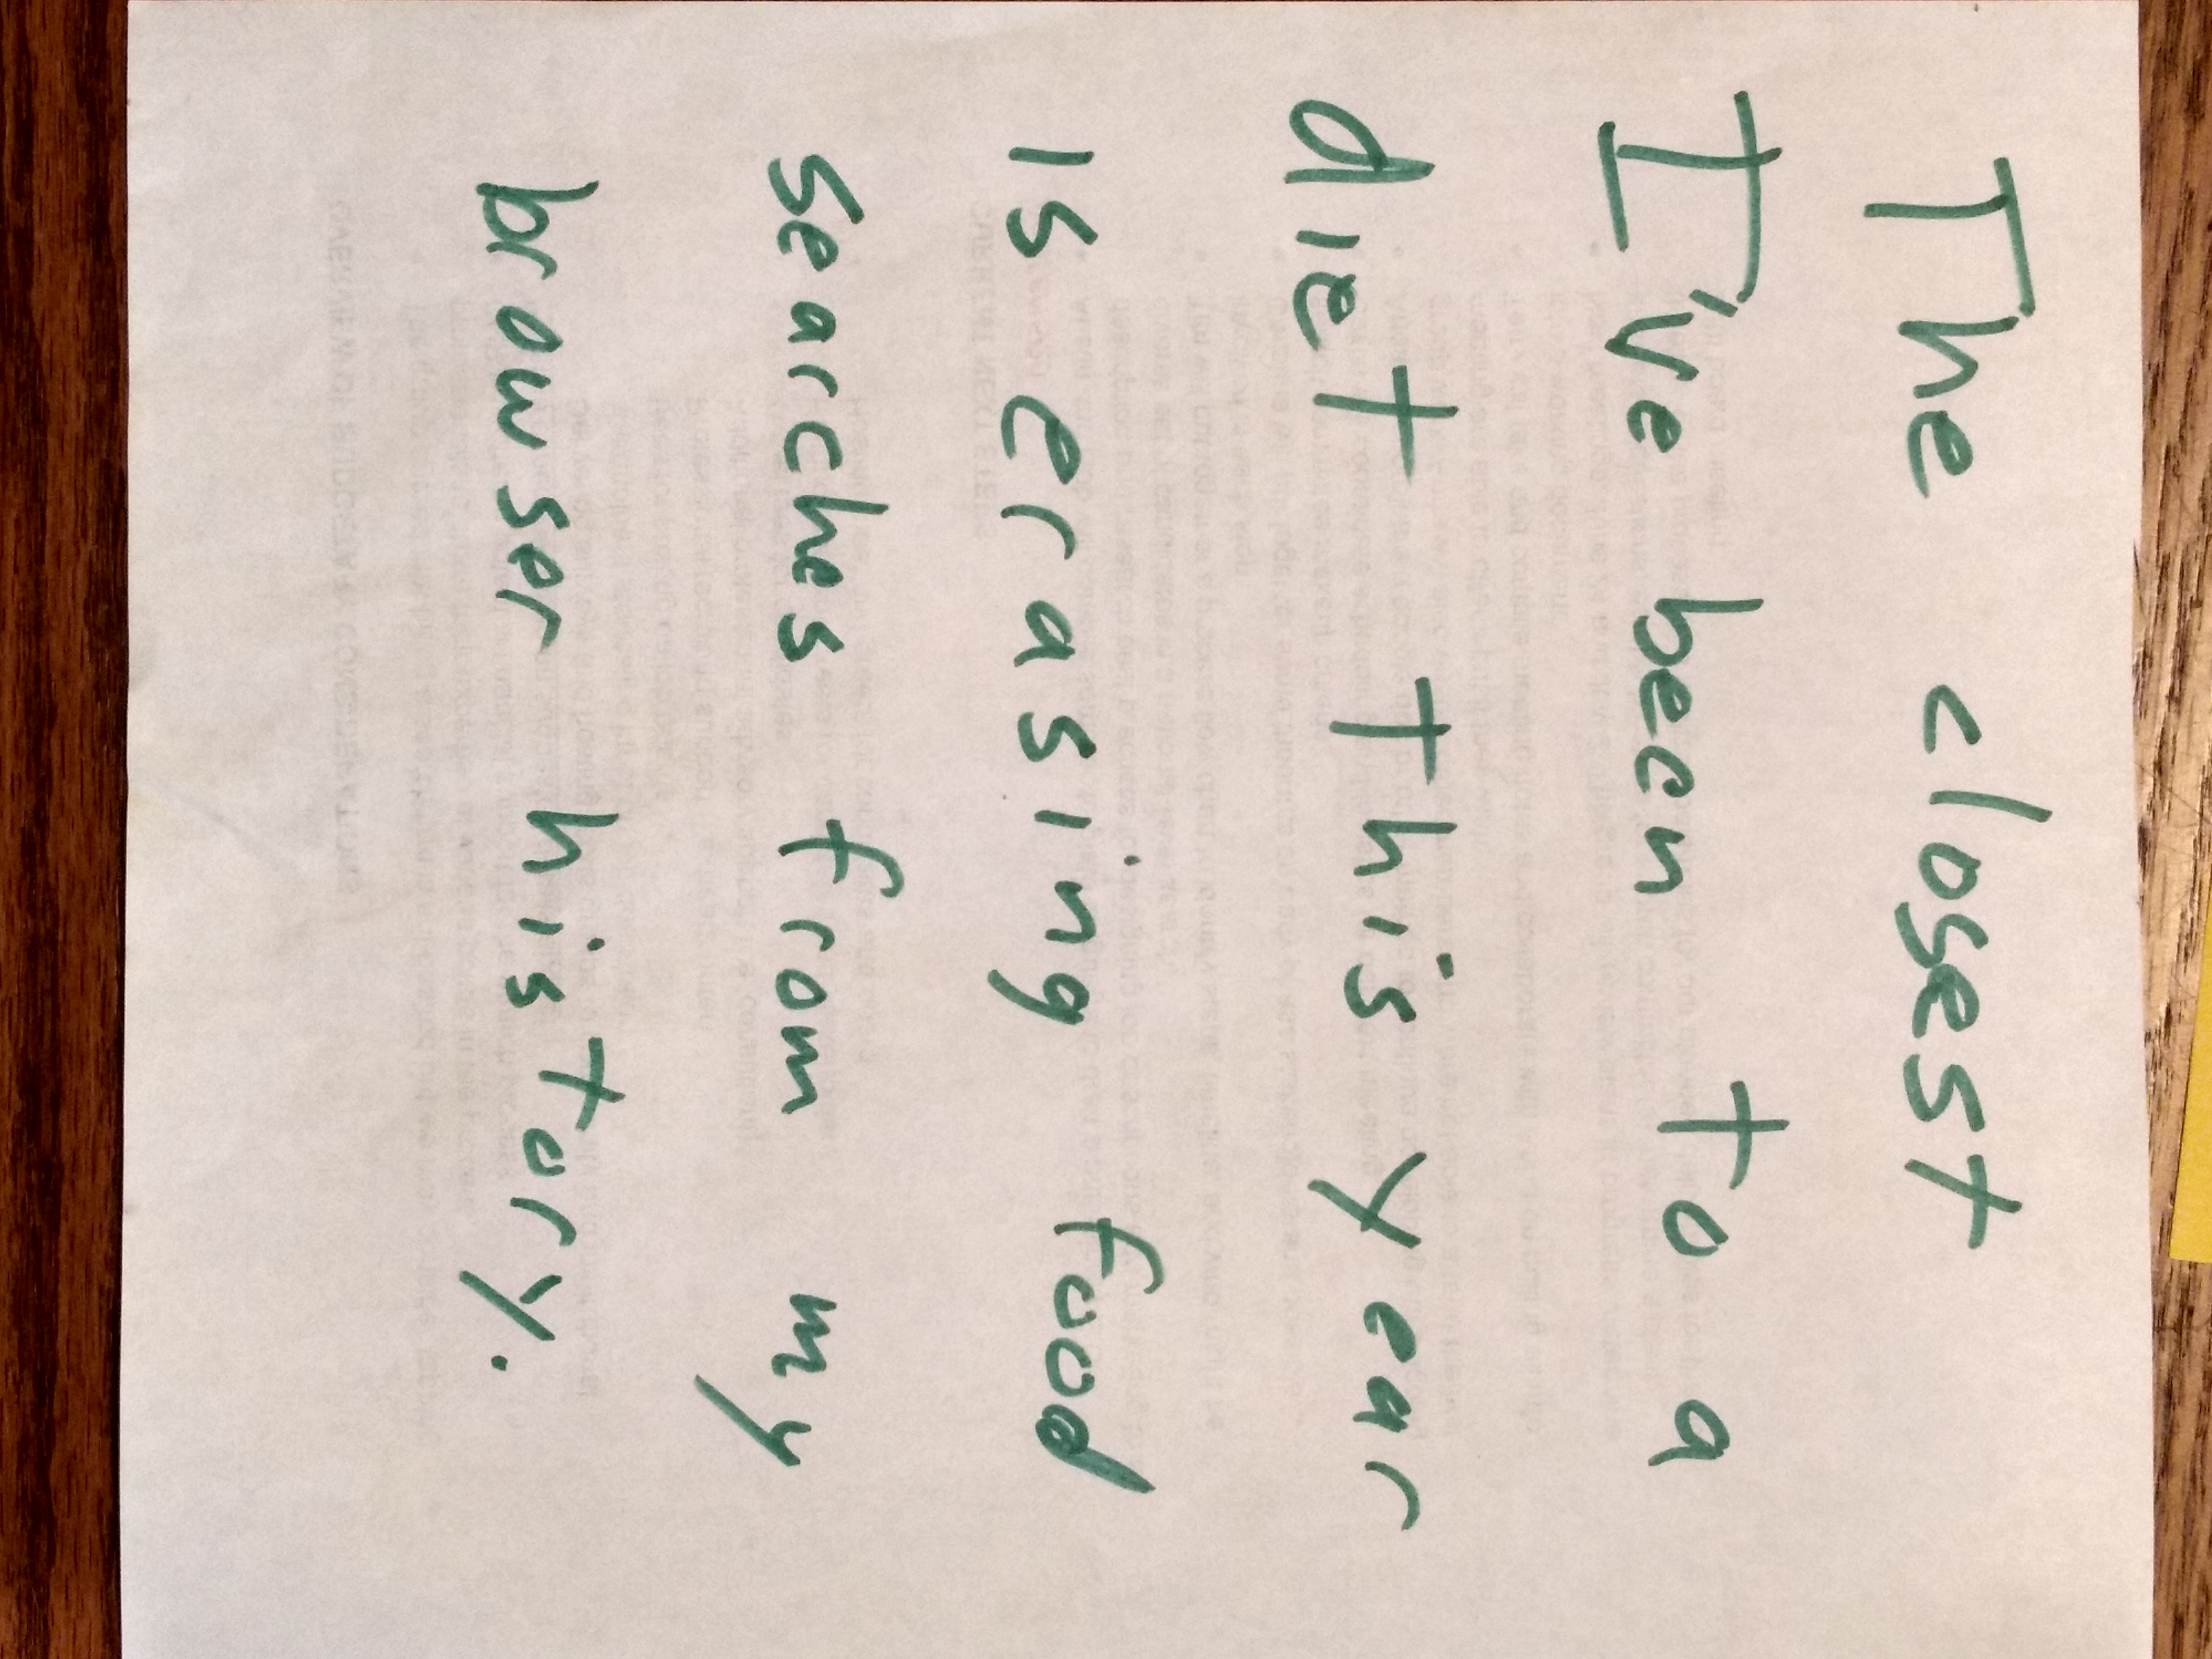 The closest
I've been to a
diet this year
is erasing food
searches from my
browser history.